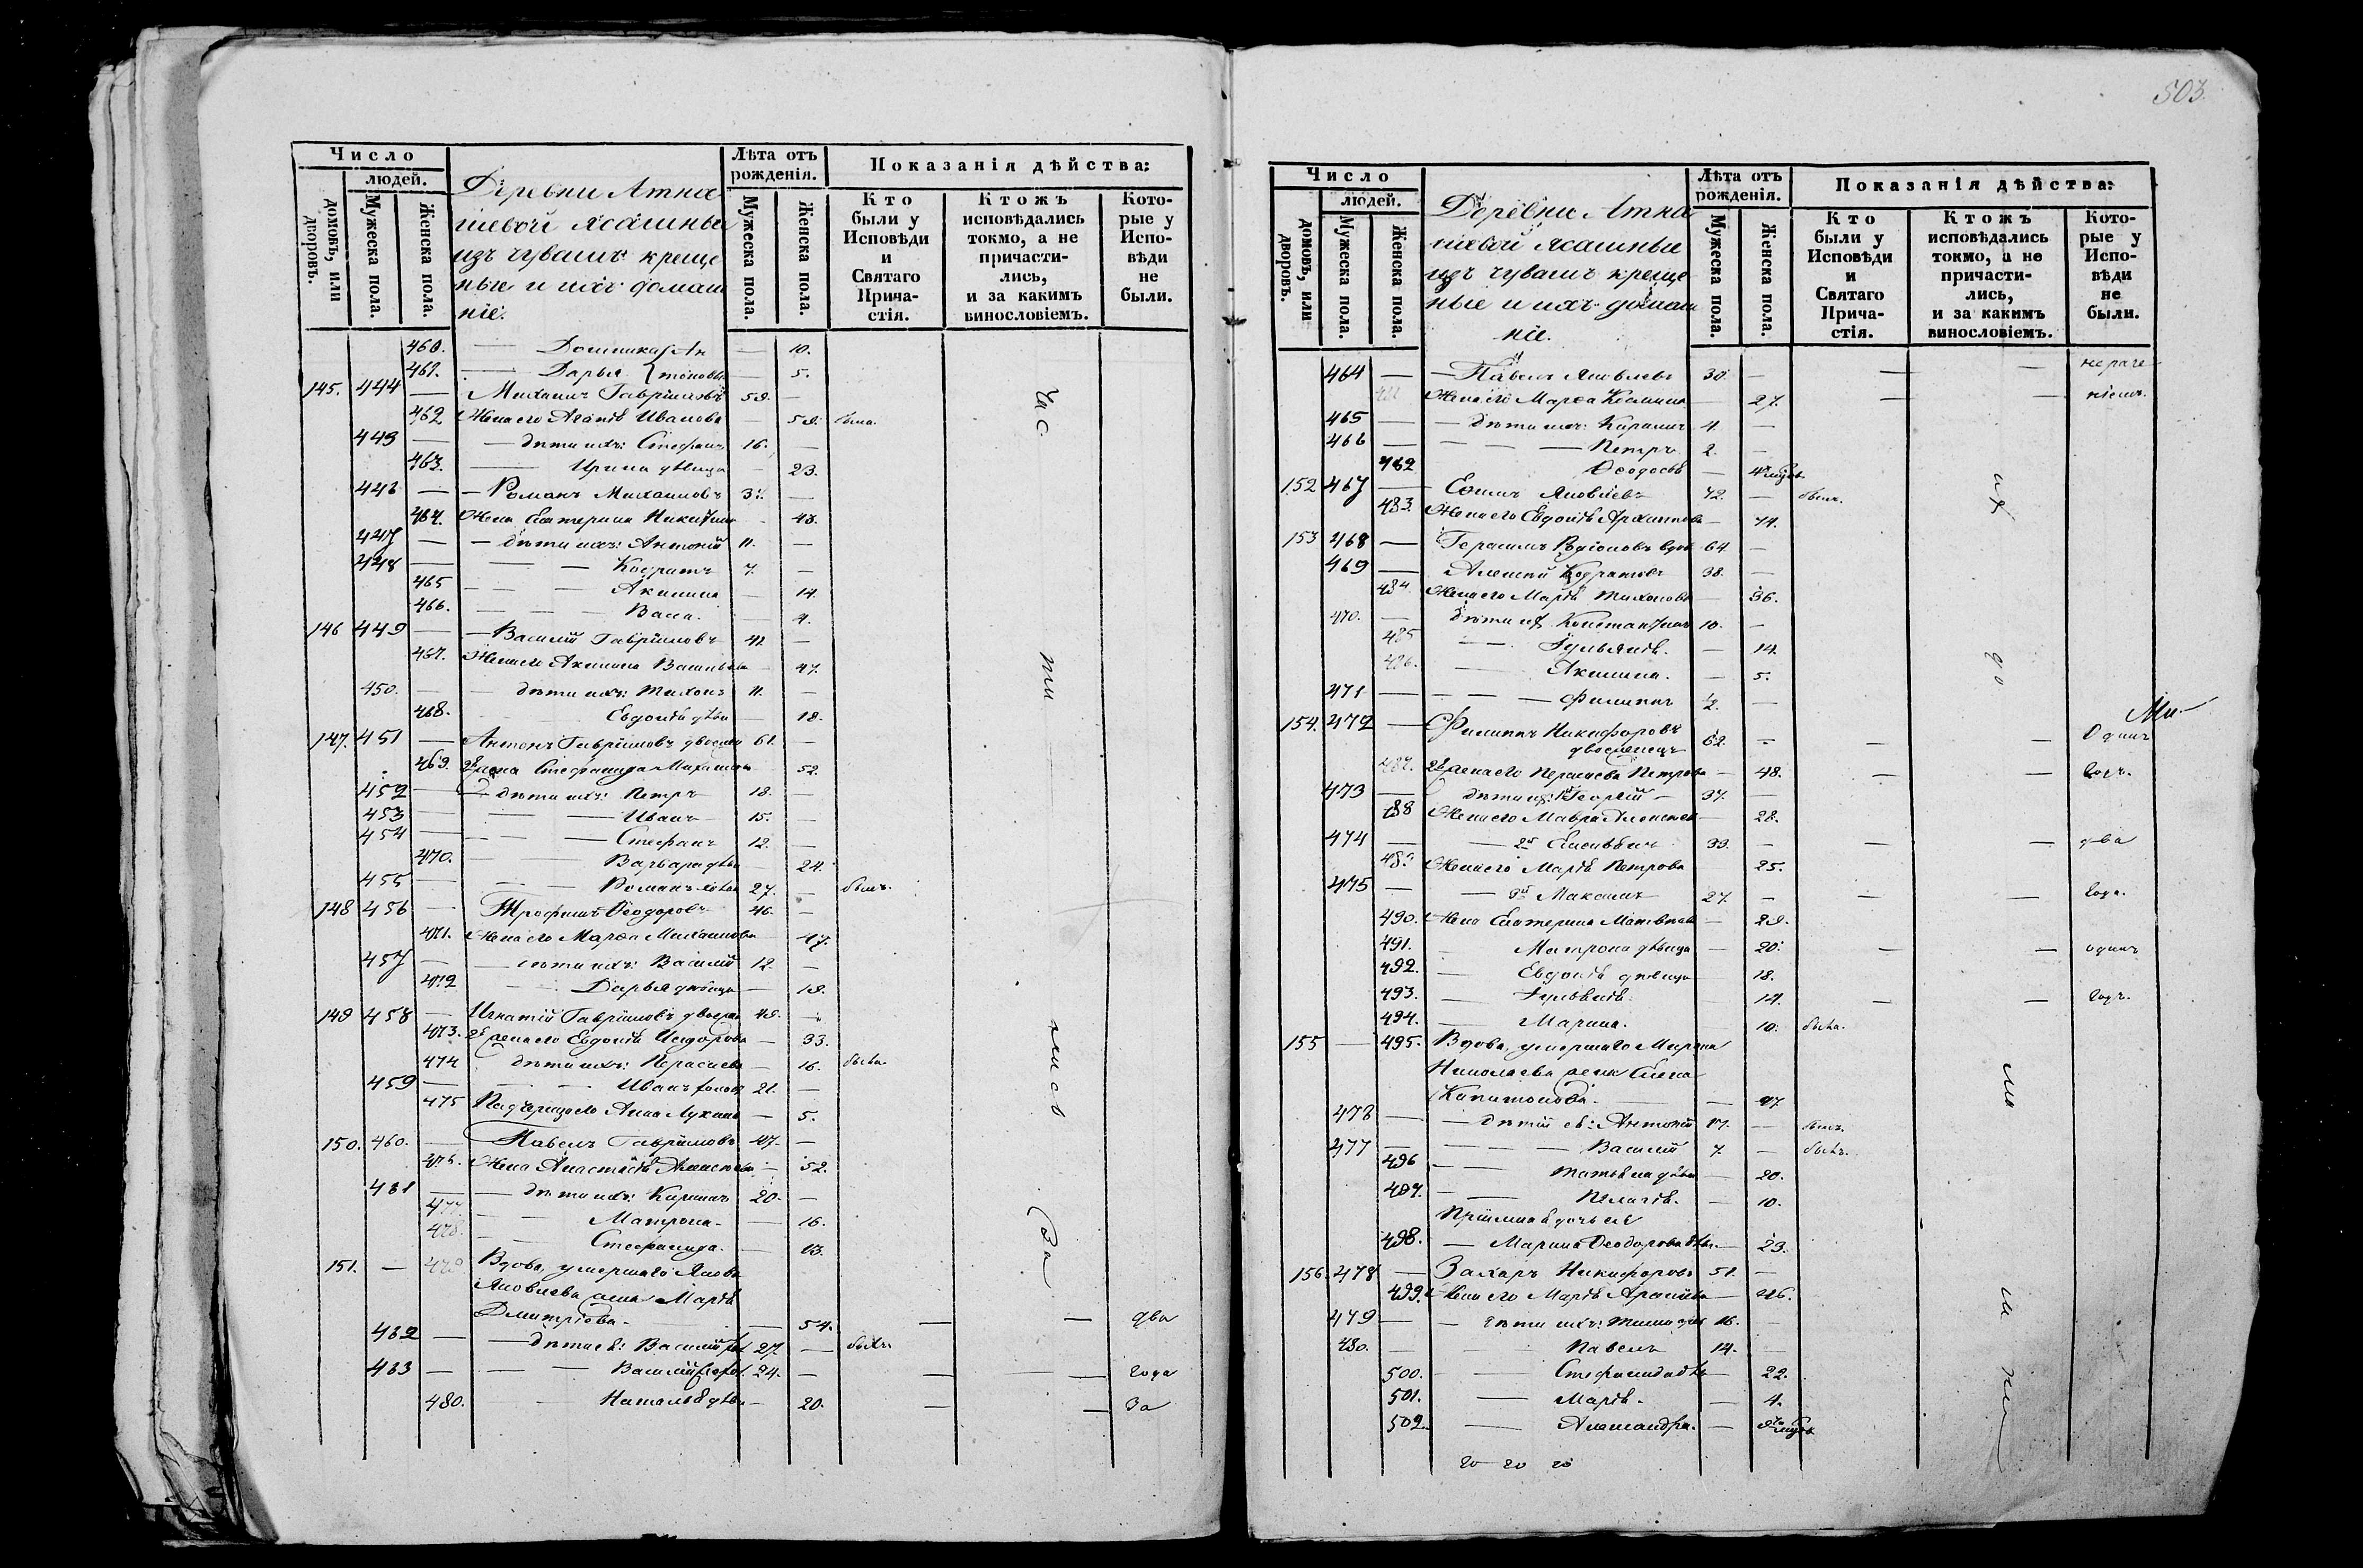 503.
Число
людей.
домовъ, или дворовъ.
Мужеска пола.
Женска пола.
Деревни Атна
шевой ясашныи
изъ чувашъ креще
ные и ихъ домаш
ніе.
Лѣта отъ рожденія.
Мужеска пола.
Женска пола.
Показанія дѣйства:
Кто были у Исповѣди и Святаго Прича-стія.
Ктожъ исповѣдались токмо, а не причасти-лись, и за какимъ винословіемъ.
Кото-рые у Испо-вѣди не были.
460. — Домника Ан — 10.
461. — Дарья тоновы — 5.
145. 444 — Михаилъ Гавриловъ 59. —
462 Жена его Агафія Иванова — 59. была.
445 — дѣти ихъ: Стефанъ 16. —
463. — Ирина дѣвица — 23.
446 — Романъ Михаиловъ 37. —
464. Жена Екатерина Никитина — 43.
447 — дѣти ихъ: Антоній 11. —
448 — Кодратъ 7. —
465 — Акилина — 14.
466. — Васса. — 4.
146 449 — Василій Гавриловъ 41 —
467. Жена его Акилина Васильева 47.
450. — дѣти ихъ: Тихонъ 11. —
468. Евдокія дѣви — 18.
147. 451 — Антонъ Гавриловъ двоежен 61. —
469. 2я жена Стефанида Михаилова 52.
452 — дѣти ихъ: Петръ 18. —
453 — Иванъ 15. —
454 — Стефанъ 12. —
470. — Варвара дѣви 24.
455 — Романъ холос 27. — былъ.
148 456 — Трофимъ Ѳеодоровъ 46. —
471. Жена его Марѳа Михаилова 47.
457 — дѣти ихъ: Василій 12. —
472 — Дарья дѣвица — 19.
149 458 — Игнатій Гавриловъ двоежен 49. —
473. 2я жена его Евдокія Исидорова — 33.
474 дѣти ихъ: Параскева — 16. была
459 — Иванъ холос 21. —
475 Падчерица его Анна Лукина — 5.
150. 460. — Павелъ Гавриловъ 47. —
476. Жена Анастасія Алексѣева — 52.
461 — дѣти ихъ: Кириллъ 20. —
477. — Матрона — 16.
478. — Стефанида. — 13.
151. — 479 Вдова, умершаго Якова
Яковлева жена Марія
Дмитріева. — 54. — — два
462 — дѣти ея: Василій хол 27. — былъ
463 — Василій 24. — — — года
480. — Наталья дѣви — 20. — — За
Час
ти
лисо
За
Число
людей.
домовъ, или дворовъ.
Мужеска пола.
Женска пола.
Деревни Атна
шевой ясашныи
изъ чувашъ креще
ные и ихъ домаш
ніе.
Лѣта отъ рожденія.
Мужеска пола.
Женска пола.
Показанія дѣйства:
Кто были у Исповѣди и Святаго Прича-стія.
Ктожъ исповѣдались токмо, а не причасти-лись, и за какимъ винословіемъ.
Кото-рые у Испо-вѣди не были.
464 — Павелъ Яковлевъ 30. — — — нераче
481 Жена его Марѳа Космина 27. — — ніемъ.
465 — дѣти ихъ: Кириллъ 4. —
466 — Петръ 2. —
482 Ѳеодосія —
152 467 — Еѳимъ Яковлевъ 72. — былъ.
483. Жена его Евдокія Архипова — 74.
153 468 — Герасимъ Родіоновъ вдов 64. —
469 — Алексѣй Кодратовъ 38. —
484 Жена его Марія Тихонова 36.
470. — дѣти их Константинъ 10. —
485 — Гульянія. — 14.
486. — Акилина. — 5.
471 — Филиппъ ½. —
154. 472 — Филиппъ Никифоровъ
двоеженецъ 62. — — — Одинъ
487. 2я жена его Параскева Петрова — 48. — — годъ.
473 — дѣти их: 1й Георгій — 37. —
488 Жена его Мавра Алексѣев 28.
474 — 2й Елисѣй 33. — — — два
489 Жена его Марія Петрова 25.
475 — 3й Максимъ 27. — — — года.
490. Жена Екатерина Матвѣева — 29.
491. Матрона дѣвица — 20. — — одинъ
492. — Евдокія дѣвица 18.
493. — Гульянія. 14. — — годъ.
494. — Марина. 10. была.
155 — 495. Вдова, умершаго Мирона
Николаева жена Елена
Капитонова. — — 47
476 — дѣти ея: Антоній 17. — былъ
477 — Василій 7. — былъ.
496 — Татьяна дѣви — 20.
497. — Пелагія. — 10.
Пріемная дочь ея
498. — Марина Ѳеодорова дѣв. — 23.
156. 478 — Захаръ Никифоровъ 51. —
499. Жена его Марія 46.
479 — дѣти ихъ: Тимофей 16. —
480. — Павелъ 14. —
500. — Стефанида дѣв 22.
501. — Марія. — 4.
502. — Александра. —
их
до
ма
ш
ни
Ми-